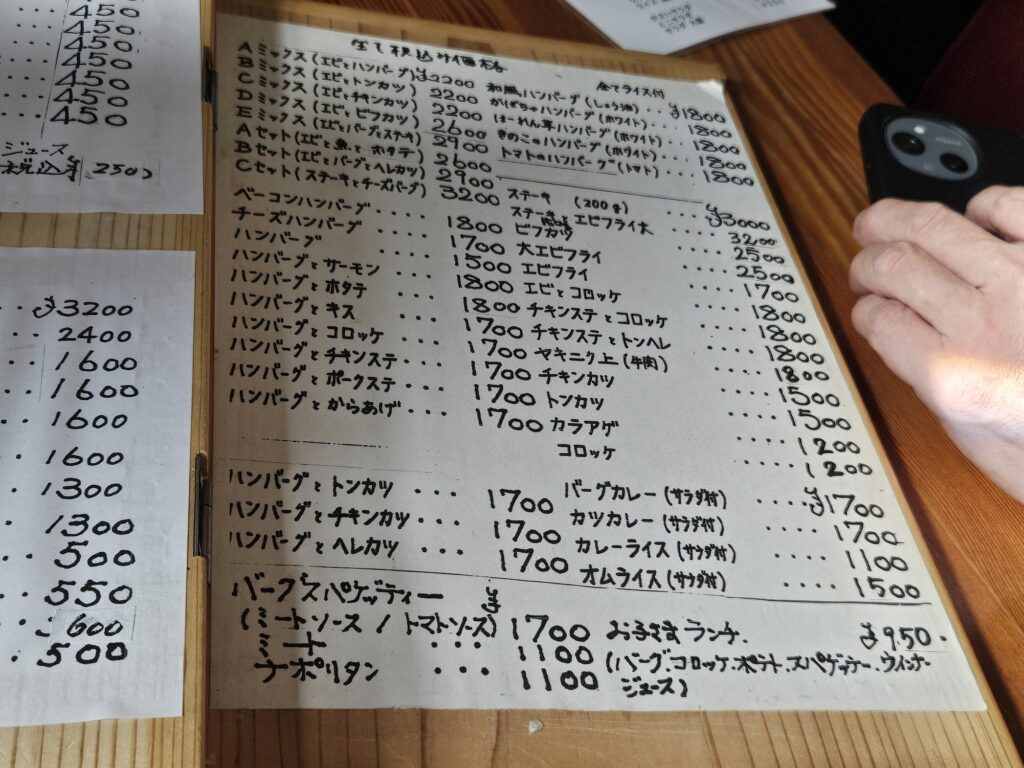 450
450
450
450
450
450
ジュース
税込¥250
¥3200
2400
1600
1600
1600
1600
1300
1300
500
550
600
500
全て税込み価格
Aミックス(エビとハンバーグ)¥2200
Bミックス(エビとトンカツ) 2200
Cミックス(エビとチキンカツ) 2200
Dミックス(エビとビフカツ) 2600
Eミックス(エビとバーグとステキ) 2900
Aセット(エビと魚とホタテ) 2600
Bセット(エビとバーグとヘレカツ) 2900
Cセット(ステーキとチーズバーグ) 3200
ベーコンハンバーグ ・・・・ 1800
チーズハンバーグ ・・・・ 1700
ハンバーグ 1500
ハンバーグとサーモン ・・・ 1800
ハンバーグとホタテ ・・・ 1800
ハンバーグとキス ・・・ 1700
ハンバーグとコロッケ ・・・ 1700
ハンバーグとチキンステ ・・・ 1700
ハンバーグとポークステ ・・・ 1700
ハンバーグとからあげ ・・・ 1700
ハンバーグとトンカツ ・・・ 1700
ハンバーグとチキンカツ ・・・ 1700
ハンバーグとヘレカツ ・・・ 1700
バーグスパゲッティー
(ミートソース / トマトソース) 1700
ミート ・・・ 1100
ナポリタン ・・・ 1100
全てライス付
和風ハンバーグ(しょうゆ)・・ ¥1800
かぼちゃハンバーグ(ホワイト)・ 1800
ほーれん草ハンバーグ(ホワイト)・ 1800
きのこのハンバーグ(ホワイト) 1800
トマトのハンバーグ(トマト)・・ 1800
ステーキ (200g) ・・・・ ¥3000
ステーキとエビフライ大 3200
ビフカツ ・・・・ 2500
大エビフライ ・・・・ 2500
エビフライ 1700
エビとコロッケ 1800
チキンステとコロッケ ・・・・ 1800
チキンステとトンヘレ ・・・・ 1800
ヤキニク上(牛肉) ・・・・ 1800
チキンカツ 1500
トンカツ ・・・・ 1500
カラアゲ ・・・・ 1200
コロッケ ・・・・・ 1200
バーグカレー(サラダ付) ・・・・ ¥1700
カツカレー(サラダ付) ・・・・ 1700
カレーライス(サラダ付) ・・・・ 1100
オムライス(サラダ付) ・・・・ 1500
お子さまランチ. ¥950.
(バーグ.コロッケ.ポテト.スパゲッテー.ウィンナー
ジュース)